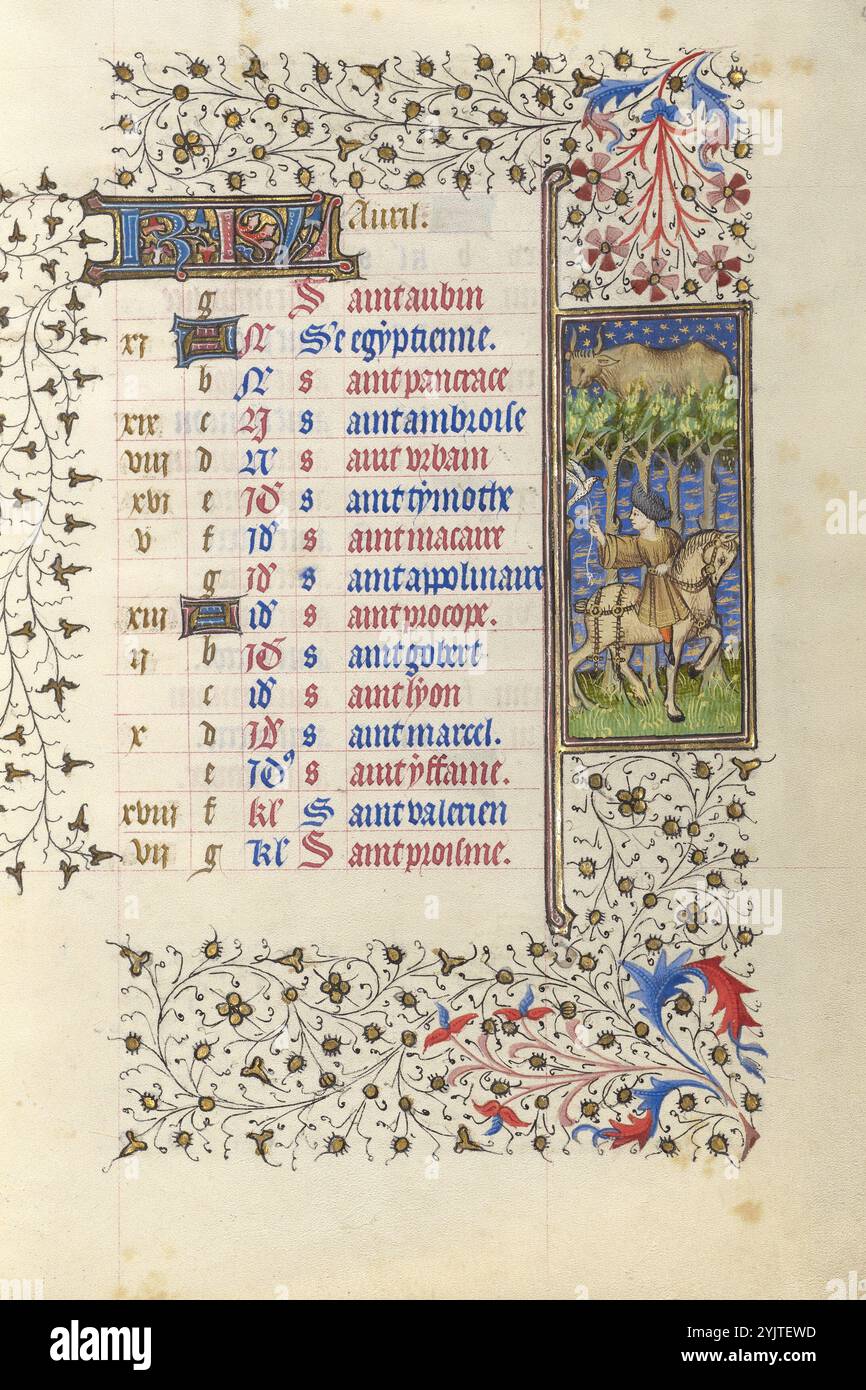 KL Auril.
g S aint aubin
xj A N Ste egyptienne.
b N s aint pancrace
xix c N s aint ambroise
viii d N s aint vrbain
xvj e Id s aint tymothe
v f id s aint macaire
g id s aint appolinaire
xiii A id s aint procope.
ij b Id s aint gobert
c id s aint lyon
x d Id s aint marcel.
e Id9 s aint yffame.
xviii f kl S aint valerien
vij g kl S aint proisme.
alamy
Image ID: 2YJTEWD
www.alamy.com